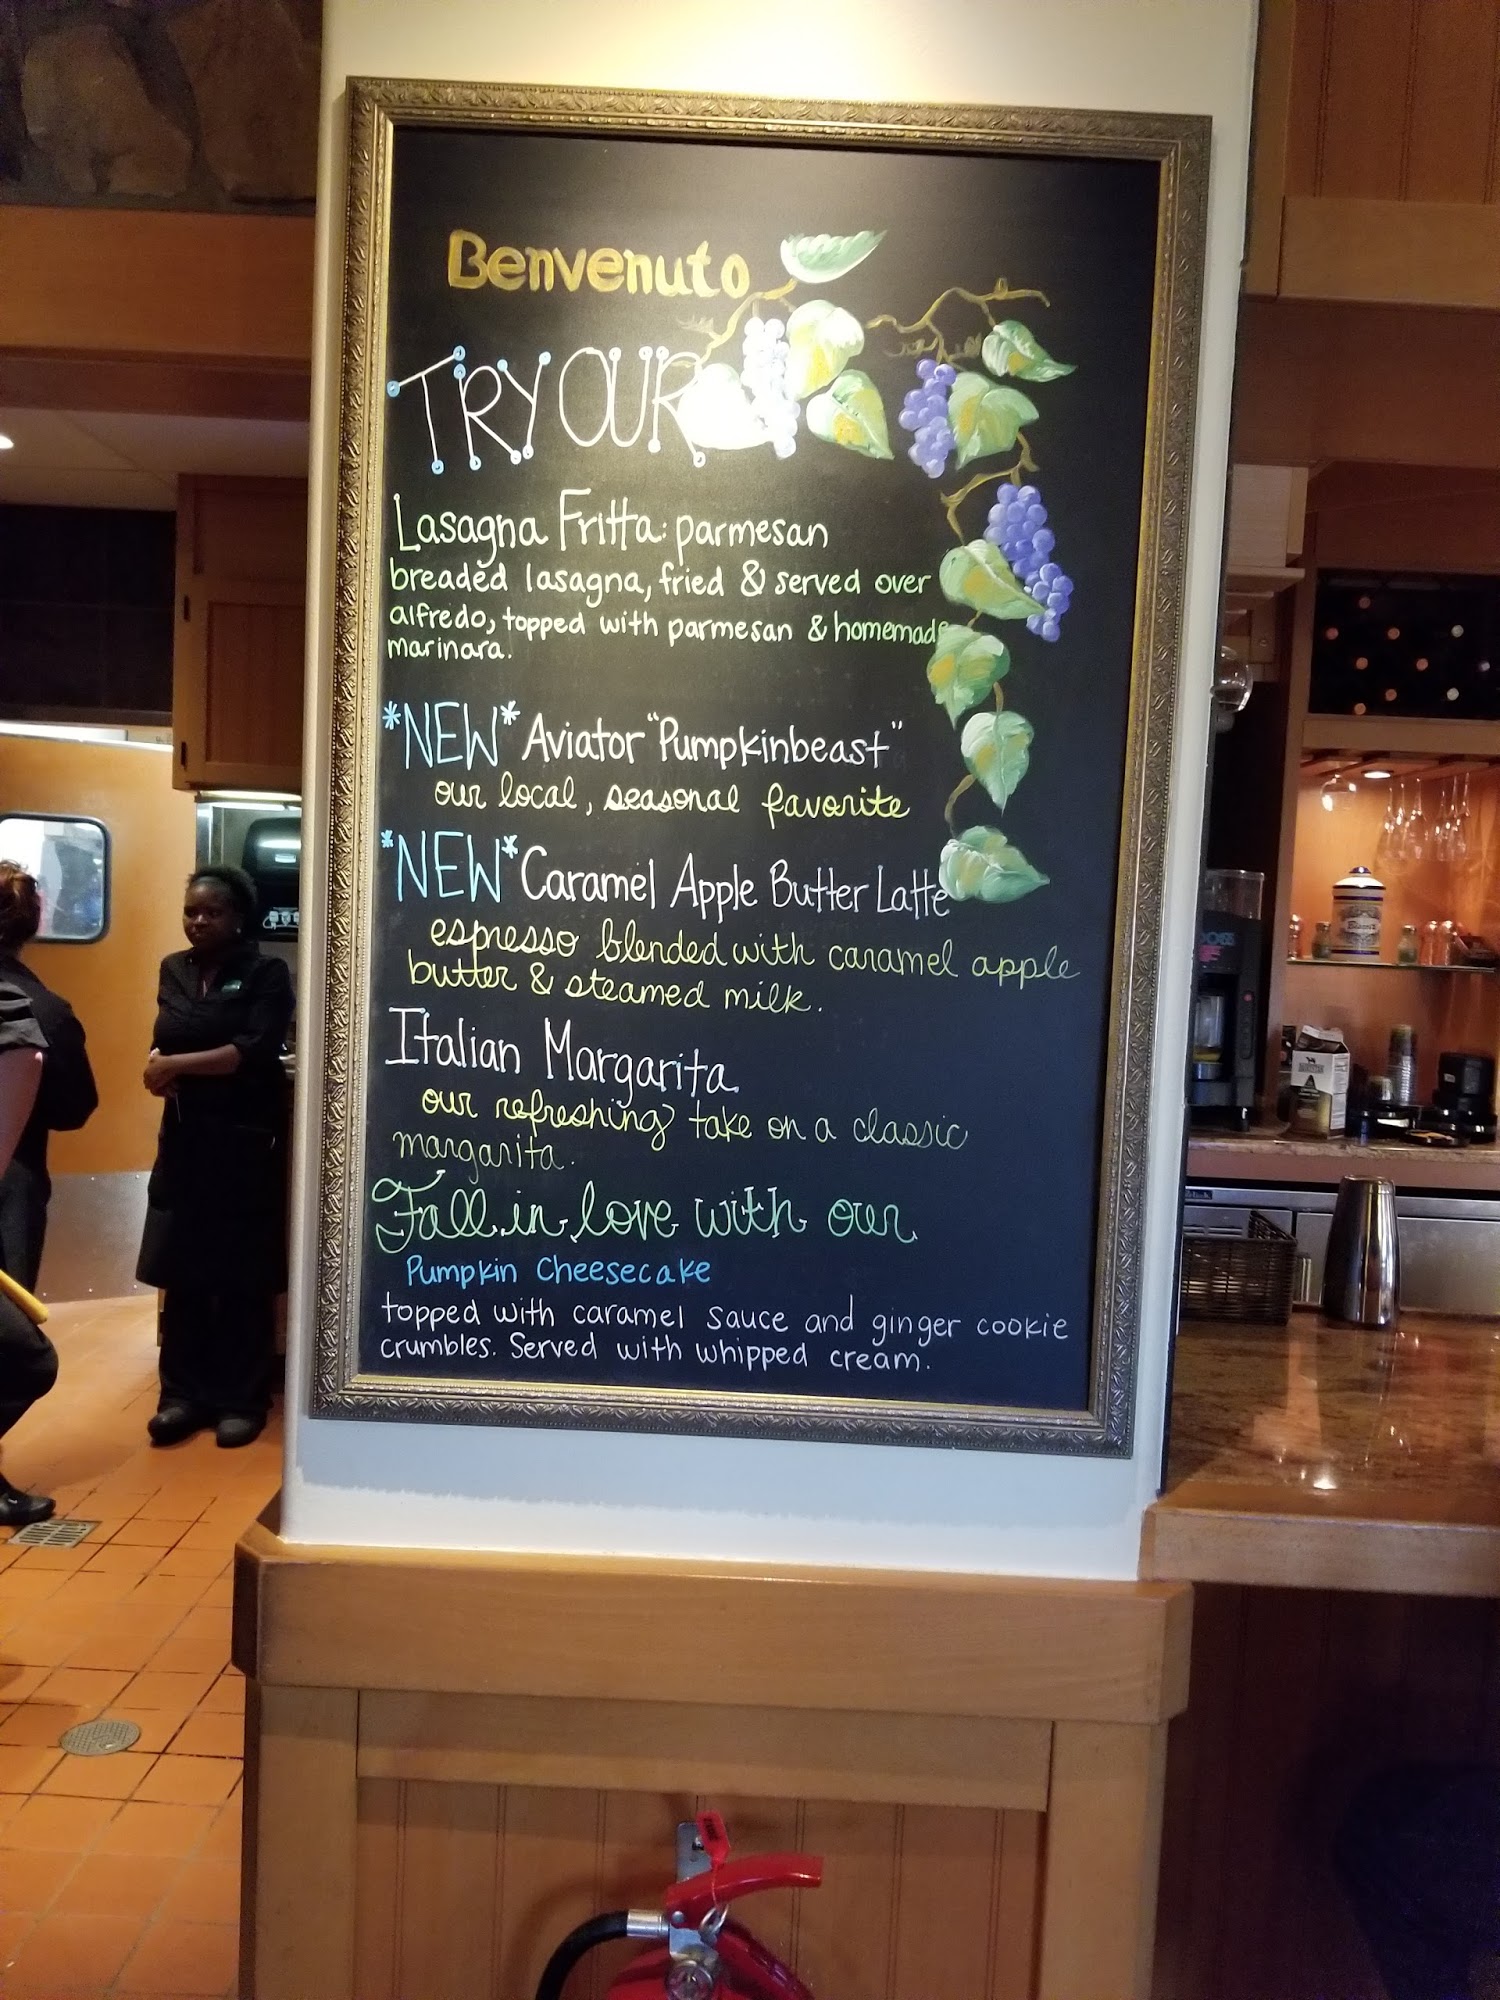 Benvenuto
TRY OUR
Lasagna Fritta: parmesan
breaded lasagna, fried & served over
alfredo, topped with parmesan & homemade
marinara.
*NEW* Aviator "Pumpkinbeast"
our local, seasonal favorite
*NEW* Caramel Apple Butter Latte
espresso blended with caramel apple
butter & steamed milk.
Italian Margarita
our refreshing take on a classic
margarita.
Fall in love with our
Pumpkin Cheesecake
topped with caramel sauce and ginger cookie
crumbles. Served with whipped cream.